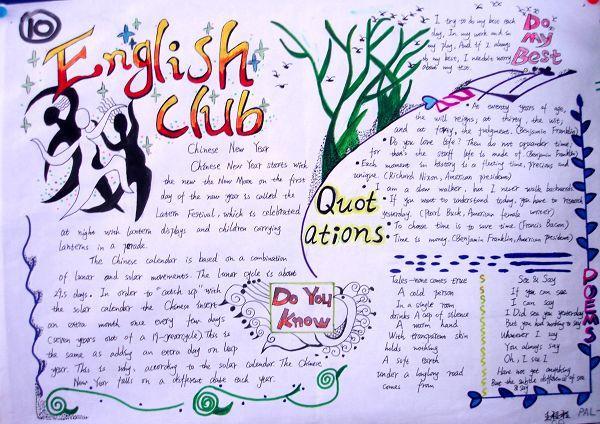 10
English
club
Chinese New Year
Chinese New Year starts with
the new the New Moon on the first
day of the new year is called the
Latern Festival, which is celebrated
at night with lantern displays and children carrying
lanterns in a parade.
The Chinese calendar is based on a combination
of lunar and solar movements. The lunar cycle is about
29.5 days. In order to "catch up" with
the solar calendar the Chinese insert
an extra month once every few days
(seven years out of a 19-yearcycle). This is
the same as adding an extra day on leap
year. This is why, according to the solar calendar. The Chinese
New Year falls on a different date each year.
Do You
Know
I try to do my best each
day, In my work and in
my play, And if I always
do my best, I needn't worry
about my test.
Do
My
Best
Quot
ations:
At twenty years of age,
the will reigns; at thirty, the wit;
and at forty, the judgment. (Benjamin Franklin)
Do you love life? Then do not squander time;
for that's the stuff life is made of. (Benjamin Franklin)
Each moment in history is a fleeting time, precious and
unique. (Richard Nixon, American president)
I am a slow walker, but I never walk backwards.
If you want to understand today, you have to research
yesterday. (Pearl Buck, American female writer)
To choose time is to save time. (Francis Bacon)
Time is money. (Benjamin Franklin, American president)
POEMS
Tales-none comes true
A cold person
In a single room
drinks A cup of silence
A warm hand
With transparent skin
holds nothing
A soft earth
under a laughing road
comes from
See & Say
If you can see
I can say
I Did see you yesterday
But you had nothing to say
Whenever I say
You always say
Oh, I see!
Have not got anything
But the subtle difference of see
& say
PAL-